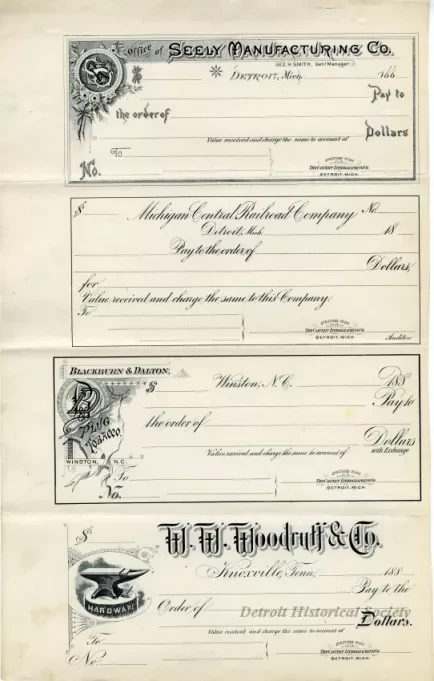 Office of SEELY MANUFACTURING CO.
GEO. H. SMITH, Gen'l Manager.
$ DETROIT, Mich. 188
Pay to
the order of
Dollars
Value received and charge the same to account of
To
No.
THE CALVERT LITHOGRAPHING CO.
DETROIT, MICH.
$ Michigan Central Railroad Company No.
Detroit, Mich. 18
Pay to the order of
Dollars,
for
Value received and charge the same to this Company.
To
THE CALVERT LITHOGRAPHING CO.
DETROIT, MICH.
Auditor.
BLACKBURN & DALTON,
$ Winston, N.C. 188
Pay to
PLUG
TOBACCO
the order of
Dollars
with Exchange
Value received and charge the same to account of
WINSTON, N.C.
To
No.
THE CALVERT LITHOGRAPHING CO.
DETROIT, MICH.
$ W. W. Woodruff & Co.
Knoxville, Tenn. 188
Pay to the
HARDWARE
Order of
Detroit Historical Society
Dollars.
Value received and charge the same to account of
To
No.
THE CALVERT LITHOGRAPHING CO.
DETROIT, MICH.